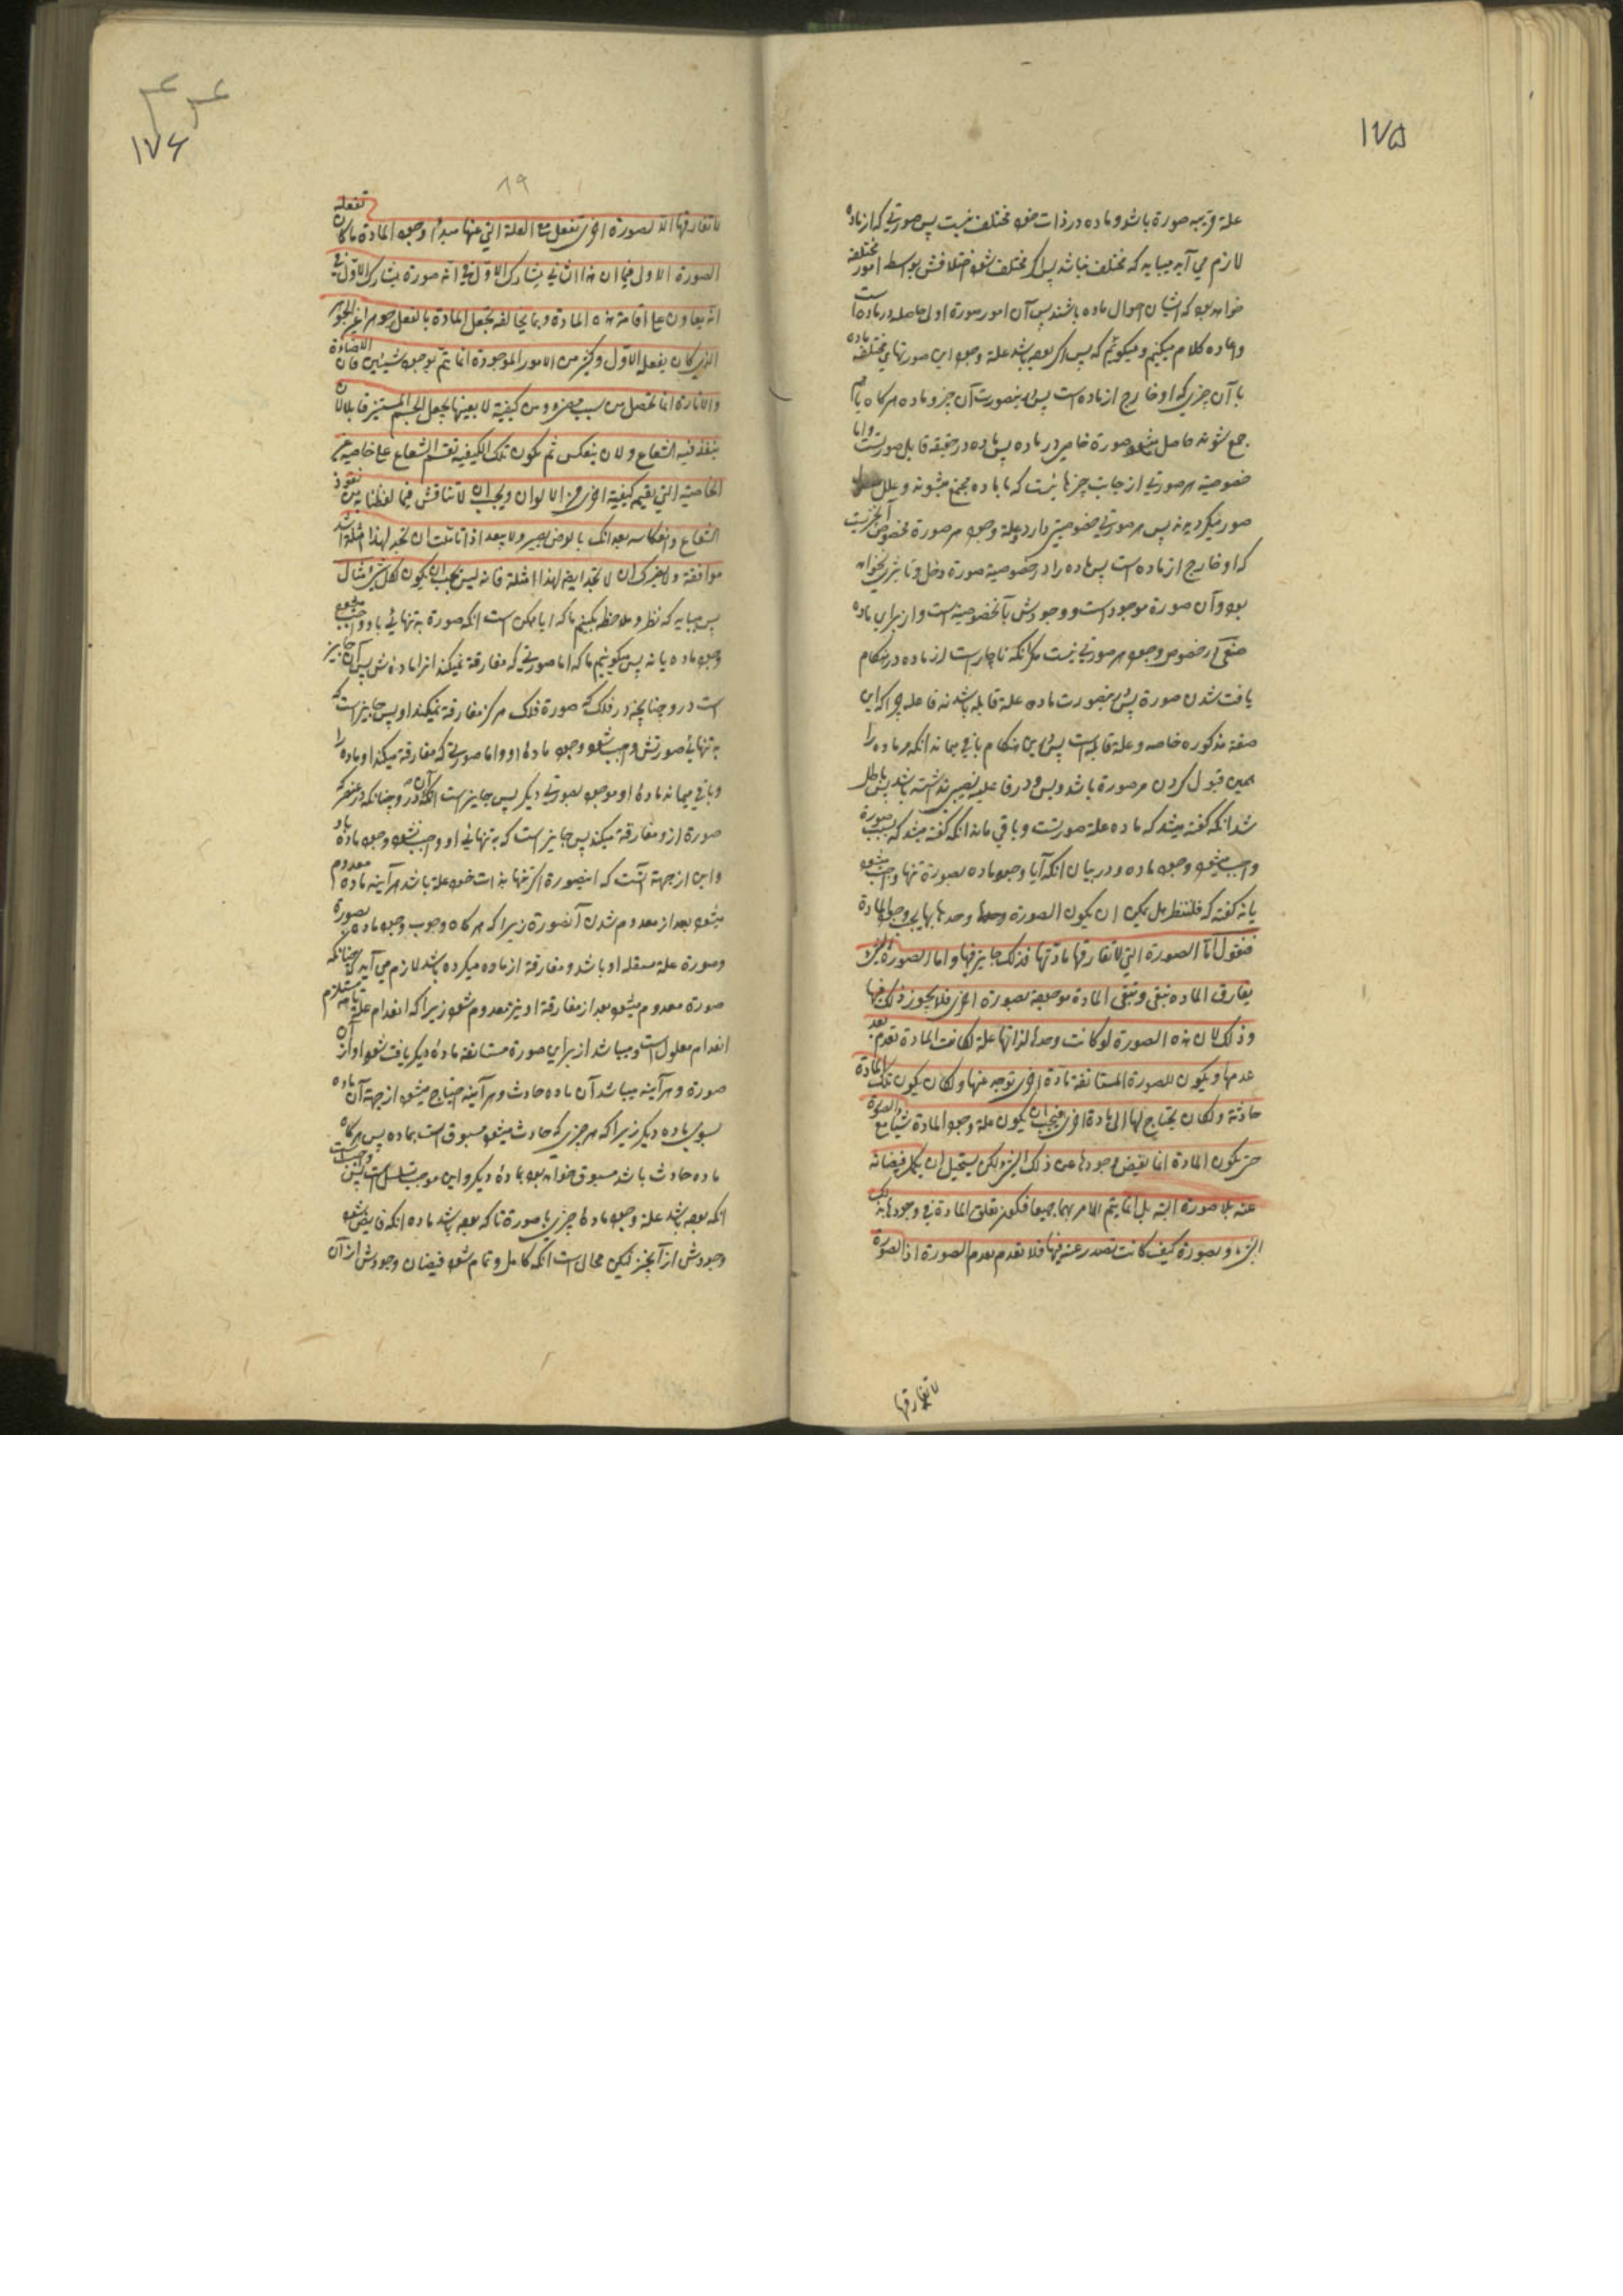 ١٧۵
علة قریبه صورة باشد و ماده در ذات خود مختلف نیست پس صورتی که از ماده
لازم می آید میباید که مختلف نباشد پس اگر مختلف شود اختلافش بواسطه امور مختلفه
خواهد بود که ایشان احوال ماده باشند پس آن امور صورة اولی حاصله در ماده است
و اعاده کلام میکنیم و میگوئیم که پس اگر بوده باشد علة وجود این صورتهای مختلفه ماده
با آن چیزی که او خارج از ماده است پس درینصورت آن چیز و ماده هرگاه باهم
جمع شوند حاصل میشود صورة خاص در ماده پس ماده در حقیقه قابل صورتست و اما
خصوصیة هر صورتی از جانب چیزهائیست که با ماده مجتمع میشوند و علل
صور میگردیدند پس هر صورتی خصوصیتی دارد و علة وجود هر صورة مخصوص آنچیزیست
که او خارج از ماده است پس ماده را در خصوصیة صورة دخل و تاثیری نخواهد
بود و آن صورة موجود است و وجودش بآنخصوصیة است و از برای ماده
صنعی در خصوص وجود هر صورتی نیست مگر آنکه ناچار است از ماده در هنگام
یافت شدن صورة پس درینصورت ماده علة قابله باشد نه فاعله چرا که این
صفة مذکوره خاصه و علة قابله است پس درین هنگام باقی میماند آنکه مر ماده را
همین قبول کردن مر صورة باشد و بس و در فاعلیه نصیبی نداشته باشد پس باطل
شد آنکه گفته میشد که ماده علة صورتست و باقی ماند آنکه گفته میشد که بسبب صورة
واجب میشود وجود ماده و در بیان آنکه آیا وجود ماده بصورة تنها واجب میشود
یا نه گفته که فلننظر هل یمکن ان یکون الصورة وحدها بها یجب وجود المادة
فنقول اما الصورة التی لا تفارقها مادتها فذلک جایز فیها و اما الصورة التی
یفارق الماده فتبقی و تبقی المادة موجودة بصورة اخری فلا یجوز ذلک فیها
و ذلک لان هذه الصورة لو کانت وحدها لذاتها علة لکانت المادة تعدم بعد
عدمها و یکون للصورة المستانفة مادة اخری توجد عنها و لکان یکون تلک المادة
حادثة و لکان یحتاج لها الی مادة اخری فیجب ان یکون علة وجود المادة شیئا مع الصورة
حتی یکون المادة انما یفیض وجودها عن ذلک الشیء لکن یستحیل ان یکمل فیضانه
عنه بلا صورة البتة بل انما یتم الامر بهما جمیعا فیکون تعلق المادة فی وجودها بذلک
الشیء و بصورة کیف کانت تصدر عنه فیها فلا تعدم بعدم الصورة اذ الصورة
لا تفارقها
١٧۶
٨٩
لا تفارقها الا لصورة اخری تفعل مع العلة التی عنها مبدأ وجود المادة ما کان تفعله
الصورة الاولی فبما ان هذا الثانی یشارک الاول فی انه صورة یشارک الاول فی
انه یعاون علی اقامة هذه المادة و بما یخالفه یجعل المادة بالفعل جوهرا غیر الجوهر
الذی کان یفعله الاول و کثیر من الامور الموجودة انما تتم بوجود شیئین فان الاضاءة
و الانارة انما تحصل من سبب مضیء و من کیفیة لا بعینها یجعل الجسم المستنیر قابلا لان
ینفذ فیه الشعاع و لان ینعکس ثم یکون تلک الکیفیة تقسم الشعاع علی خاصیة غیر
الخاصیة التی یقیم کیفیة اخری من الالوان و یجب ان لا تناقش فیما لفظنا به من نفوذ
الشعاع و انعکاسه بعد انک بالغرض بصیر و لا یبعد اذا تاملت ان تجد لهذا امثلة اشد
موافقة و لا یضرک ان لا تجد ایضا لهذا امثلة فانه لیس یجب ان یکون لکل شیء مثال
پس میباید که نظر و ملاحظه بکنیم ما که آیا ممکن است آنکه صورة به تنهائی باو واجب شود
وجود ماده یا نه پس میگوئیم ما که اما صورتی که مفارقة نمیکند از او ماده‌ش پس آن جایز
است در او چنانچه در فلک که صورة فلک هرگز مفارقة نمیکند او پس جایز است که
به تنهائی صورتش واجب شود وجود ماده او و اما صورتی که مفارقة میکند او ماده را
و باقی میماند ماده او موجود بصورتی دیگر پس جایز نیست آنکه آن در او چنانکه در عنصر که
صورة ازو مفارقة میکند پس جایز است که به تنهائی او واجب نشود وجود ماده باو
و این از جهة آنست که اینصورة اگر تنها بذات خود علة باشد هر آینه ماده معدوم
میشود بعد از معدوم شدن آنصورة زیرا که هرگاه وجوب وجود ماده بصورة
و صورة علة مستقله او باشد و مفارقة از ماده میکرده باشد لازم می آید که چنانکه
صورة معدوم میشود بعد از مفارقة او نیز معدوم شود زیرا که انعدام علة تامه مستلزم
انعدام معلول است و میباشد از برای صورة مستانفه ماده دیگر یافت شود او از آن
صورة و هر آینه میباشد آن ماده حادث و هر آینه احتیاج میشود از جهة آن ماده
بسوی ماده دیگر زیرا که هر چیزی که حادث میشود مسبوق است بماده پس هرگاه
ماده حادث باشد مسبوق خواهد بود بماده دیگر و این موجب تسلسل است پس واجب است
آنکه بوده باشد علة وجود ماده چیزی با صورة تا که بوده باشد ماده آنکه فایض شود
وجودش از آنچیز لیکن محال است آنکه کامل و تمام شود فیضان وجودش از آن